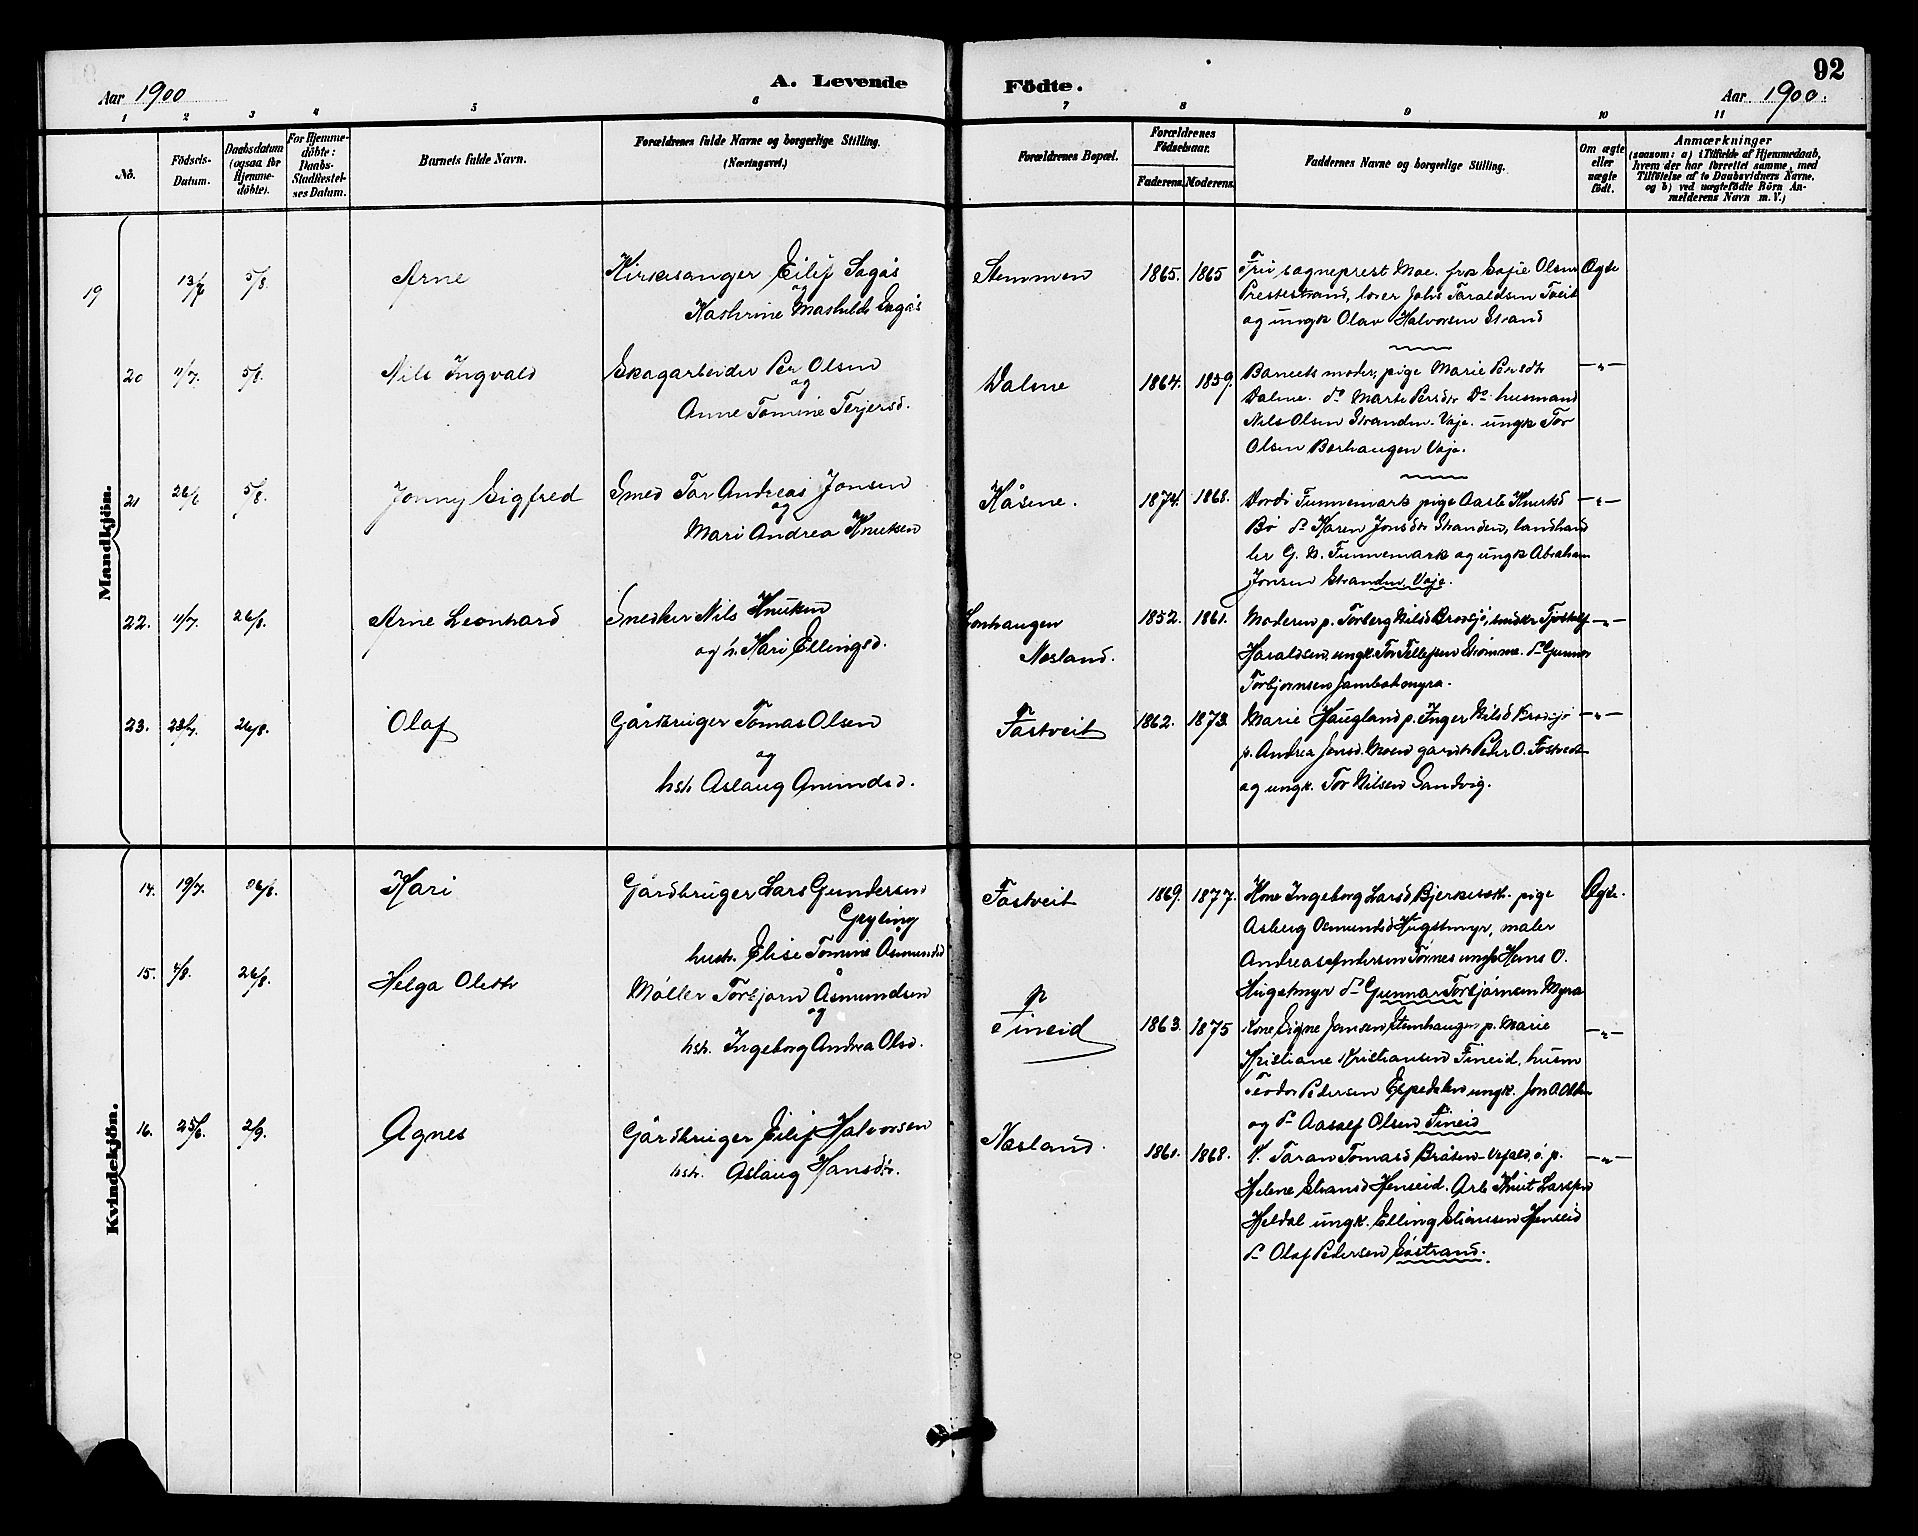 92
Aar 1900
A. Levende
Födte.
Aar 1900.
1 2 3 4 5 6 7 8 9 10 11
No.
Födsels-
Datum.
Daabsdatum
(ogsaa for
Hjemme-
döbte).
For Hjemme-
döbte:
Daabs-
Stadfæstel-
ses Datum.
Barnets fulde Navn.
Forældrenes fulde Navne og borgerlige Stilling.
(Næringsvei.)
Forældrenes Bopæl.
Forældrenes
Födselsaar.
Faderens. Moderens.
Faddernes Navne og borgerlige Stilling.
Om ægte
eller
uægte
födt.
Anmærkninger
(saasom: a) i Tilfælde af Hjemmedaab,
hvem der har forrettet samme, med
Tilföielse af to Daabsvidners Navne,
og b) ved uægtefödte Börn An-
melderens Navn m. V.)
Mandkjön.
19 13/7 5/8. Arne
Kirkesanger Eilif Sagås
og
Kathrine Mathilde Sagås
Stemmen 1865. 1865
Fru sogneprest Moe. frø Sofie Olsen
Prestestrand, lærer Johs Taraldsen Tveit
og ungk Olav Halvorsen Strand
Ægte
20 11/7. 5/8. Nils Ingvald
Skogarbeider Per Olsen
og
Anne Tomine Terjersd.
Dalene 1864. 1859.
Barnets moder, pige Marie Persdtr
Dalene. do Marte Persdtr Do husmand
Nils Olsen Stranden. Vaje. ungk Tor
Olsen Borhaugen Vaje.
—"—
21 26/6 5/8. Jonny Sigfred
Smed Tor Andreas Jonsen
og
Mari Andrea Knutsen
Kåsene. 1874. 1868.
Dordi Tunnemark pige Aaste Knutsd
Bø do Karen Jonsdtr Stranden, landhand
ler G. K. Tunnemark og ungk Abraham
Jonsen Stranden, Vaje.
—"—
22. 11/7. 26/8. Arne Leonhard
Snedker Nils Knutsen
og h. Kari Ellingsd.
Lonhaugen
Næsland.
1852. 1861.
Moderen p. Torberg Nilsd Brosjø, snedkr Tjostolf
Haraldsen, ungk. Tor Tellefsen Strømme. do Gunnar
Torbjørnsen Jambakmyra.
—"—
23. 28/7. 26/8. Olaf
Gårdbruger Tomas Olsen
og
hstr Aslaug Anundsd.
Fostveit 1862. 1873.
Marie Haugland p. Inger Nilsd Brosjø
p. Andrea Jonsd. Moen gardbr Peder O. Fostveit
og ungk. Tor Nilsen Sandvig.
—"—
Kvindekjön.
14. 19/7. 26/8. Kari
Gårdbruger Lars Gundersen
Gryting
hustr. Elise Tomine Åsmundsd
Fostveit 1869. 1877.
Kone Ingeborg Larsd Bjerkesæt. pige
Asberg Osmundsd Hugstmyr, maler
Andreas Andersen Tornes ungk Hans O.
Hugstmyr do Gunnar Torbjørnsen Myra
Ægte.
15. 1/8. 26/8. Helga Olette
Møller Torbjørn Åsmundsen
og
hstr. Ingeborg Andrea Olsd.
på
Fineid
1863. 1875
Kone Signe Jansen, Stenhaugen p. Marie
Kristiane Kristiansen Fineid, husm
Teodor Pedersen Espedalen ungk. Jon O. Olsen
og do Aasolf Olsen Fineid
—"—
16. 25/6. 2/9. Agnes
Gårdbruger Eilif Halvorsen
hstr. Aslaug Hansdtr.
Næsland. 1861. 1868.
K. Taran Tomasd Bråten Vefald, ó. p.
Helene Stiansd Henseid. Arb. Knut Larsen
Heldal ungk. Elling Stiansen Henseid
do Olaf Pedersen Søstrand.
—"—